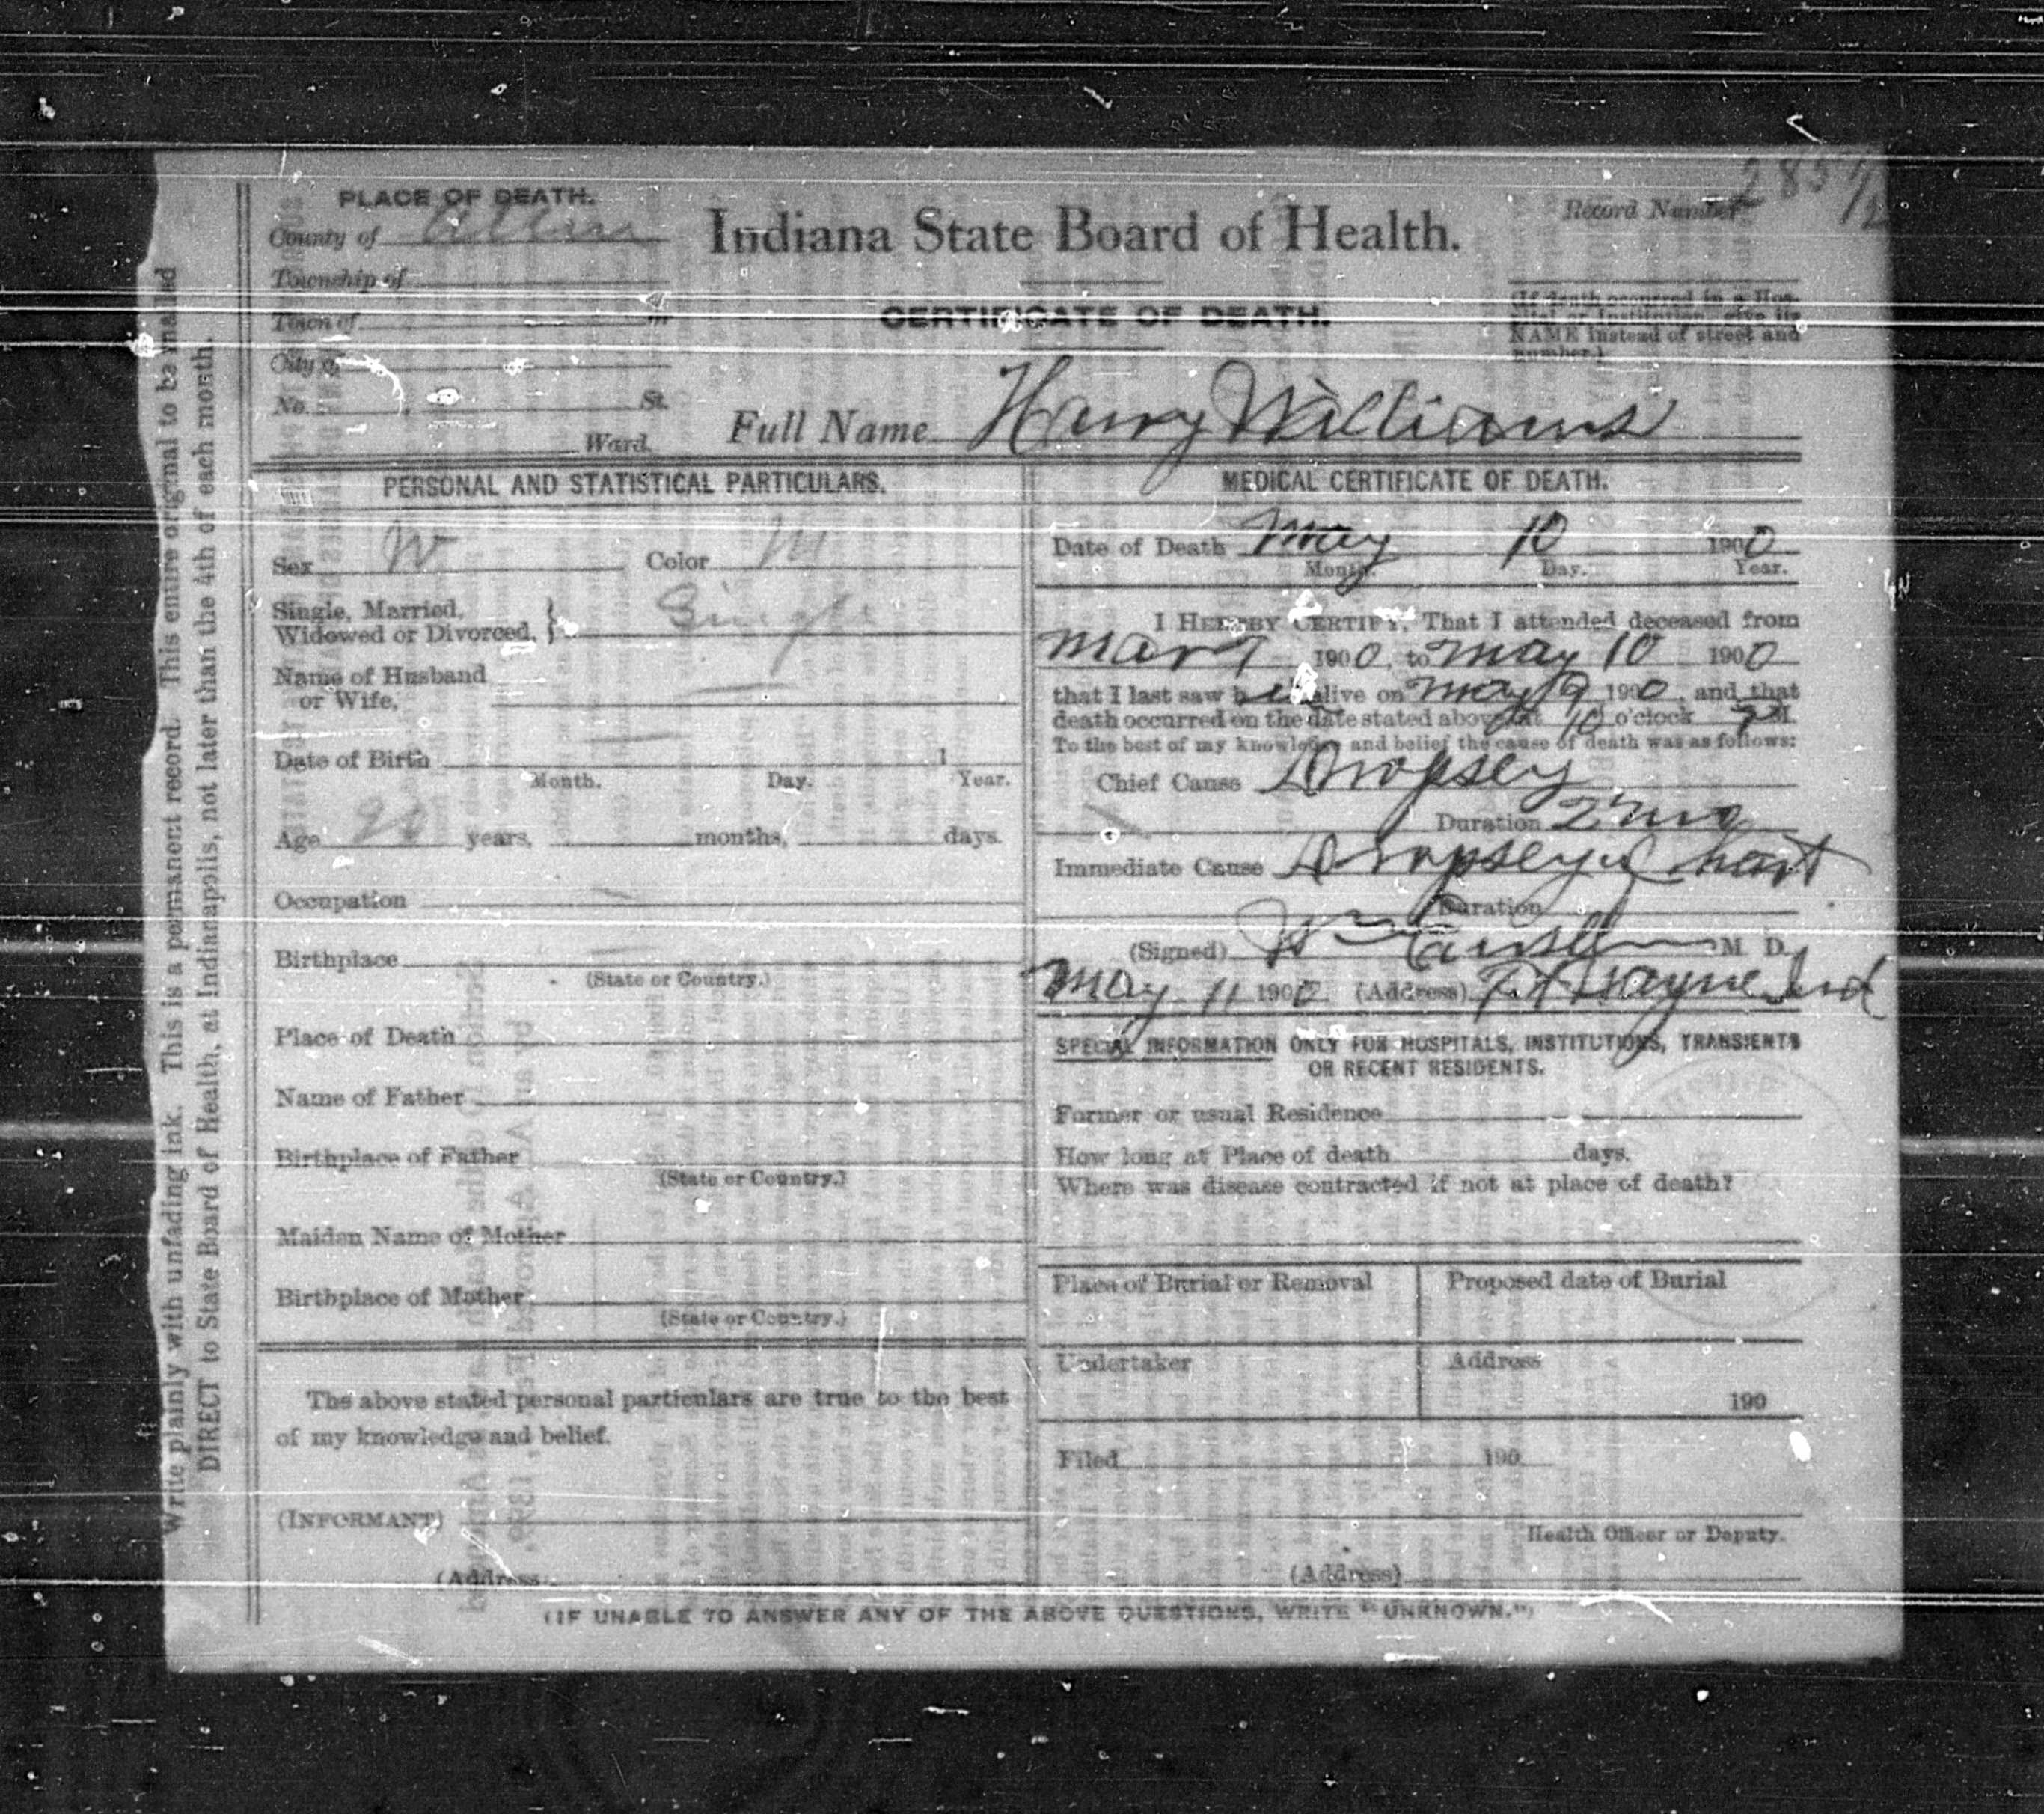 PLACE OF DEATH.
County of Allen
Township of
Town of
City of
No. St.
Ward.
Indiana State Board of Health.
CERTIFICATE OF DEATH.
Record Number 285 1/2
(If death occurred in a Hos-
pital or Institution, give its
NAME instead of street and
number.)
Full Name Harry Williams
PERSONAL AND STATISTICAL PARTICULARS.
Sex W Color M
Single, Married,
Widowed or Divorced, } Single
Name of Husband
or Wife,
Date of Birth 1
Month. Day. Year.
Age years, months, days.
Occupation
Birthplace
(State or Country.)
Place of Death
Name of Father
Birthplace of Father
(State or Country.)
Maiden Name of Mother
Birthplace of Mother
(State or Country.)
The above stated personal particulars are true to the best
of my knowledge and belief.
(INFORMANT)
(Address
MEDICAL CERTIFICATE OF DEATH.
Date of Death May 10 1900
Month. Day. Year.
I HEREBY CERTIFY, That I attended deceased from
Mar 1900, to May 10 1900
that I last saw h alive on May 9 1900, and that
death occurred on the date stated above, at 10 o'clock M.
To the best of my knowledge and belief the cause of death was as follows:
Chief Cause Dropsey
Duration 2 mo
Immediate Cause Dropsey of heart
Duration
(Signed) Wm M. D.
May 11 1900 (Address) Ft Wayne Ind
SPECIAL INFORMATION ONLY FOR HOSPITALS, INSTITUTIONS, TRANSIENTS
OR RECENT RESIDENTS.
Former or usual Residence
How long at Place of death days.
Where was disease contracted if not at place of death?
Place of Burial or Removal Proposed date of Burial
Undertaker Address
190
Filed 190
Health Officer or Deputy.
(Address)
(IF UNABLE TO ANSWER ANY OF THE ABOVE QUESTIONS, WRITE "UNKNOWN.")
Write plainly with unfading ink. This is a permanent record. This entire original to be mailed
DIRECT to State Board of Health, at Indianapolis, not later than the 4th of each month.